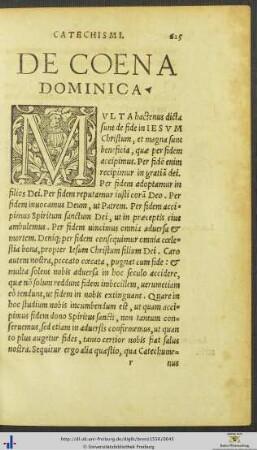 CATECHISMI. 625
DE COENA
DOMINICA
MVLTA hactenus dicta
sunt de fide in IESVM
Christum, et magna sunt
beneficia, quæ per fidem
accipimus. Per fidē enim
recipimur in gratiā dei.
Per fidem adoptamur in
filios Dei. Per fidem reputamur iusti corā Deo. Per
fidem inuocamus Deum, ut Patrem. Per fidem acci
pimus Spiritum sanctum Dei, ut in præceptis eius
ambulemus. Per fidem uincimus omnia aduersa &
mortem. Deniq; per fidem consequimur omnia cœle
stia bona, propter Iesum Christum filium Dei. Caro
autem nostra, peccato cœcata, pugnat cum fide: &
multa solent nobis aduersa in hoc seculo accidere,
quæ nō solum reddunt fidem imbecillem, uerumetiam
eò tendunt, ut fidem in nobis extinguant. Quare in
hoc studium nobis incumbendum est, ut quam acci
pimus fidem dono Spiritus sancti, non tantum con-
seruemus, sed etiam in aduersis confirmemus, ut quan
to plus augetur fides, tanto certior nobis fiat salus
nostra. Sequitur ergo alia quæstio, qua Catechume-
r nus
http://dl.ub.uni-freiburg.de/diglit/brenz1551/0645
© Universitätsbibliothek Freiburg